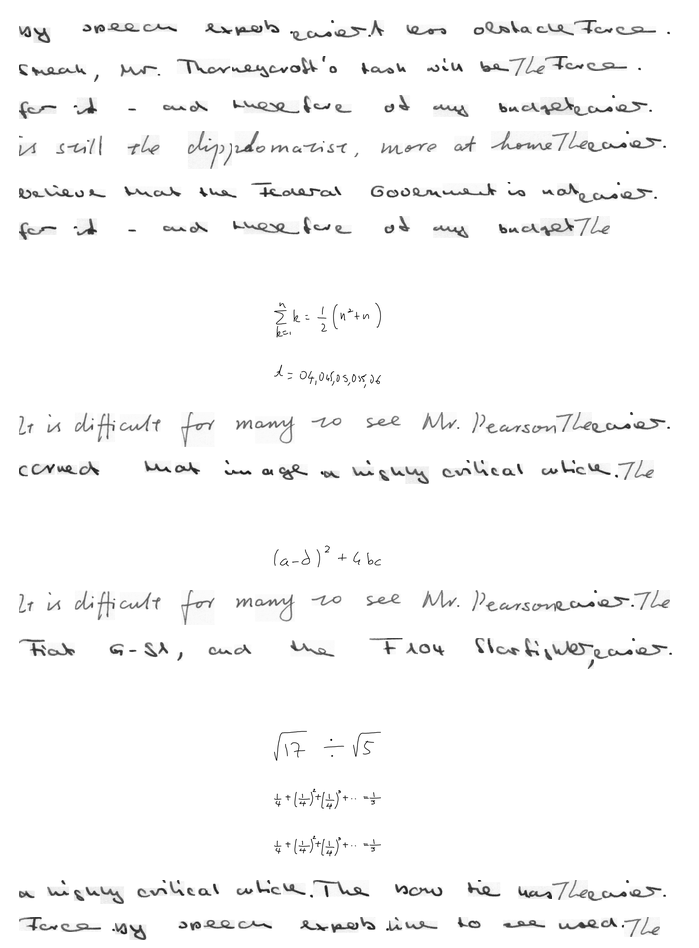 by speech experts easier. A less obstacle Force.
Smeak, Mr. Thorneycroft's task will be The Force.
for it - and therefore of any budget easier.
is still the dippdomatist, more at home The easier.
believe that the Federal Government is not easier.
for it - and therefore of any budget The
\sum_{k=1}^{n} k = \frac{1}{2} (n^2+n)
d = 04,045,05,055,06
It is difficult for many to see Mr. Pearson The easier.
cerned that image a highly critical article. The
(a-d)^2 + 4bc
It is difficult for many to see Mr. Pearson easier. The
Fiat G-91, and the F104 Starfighter, easier.
\sqrt{17} \div \sqrt{5}
\frac{1}{4} + (\frac{1}{4})^2 + (\frac{1}{4})^3 + \cdots = \frac{1}{3}
\frac{1}{4} + (\frac{1}{4})^2 + (\frac{1}{4})^3 + \cdots = \frac{1}{3}
a highly critical article. The bow tie has The easier.
Force. by speech experts line to see used. The